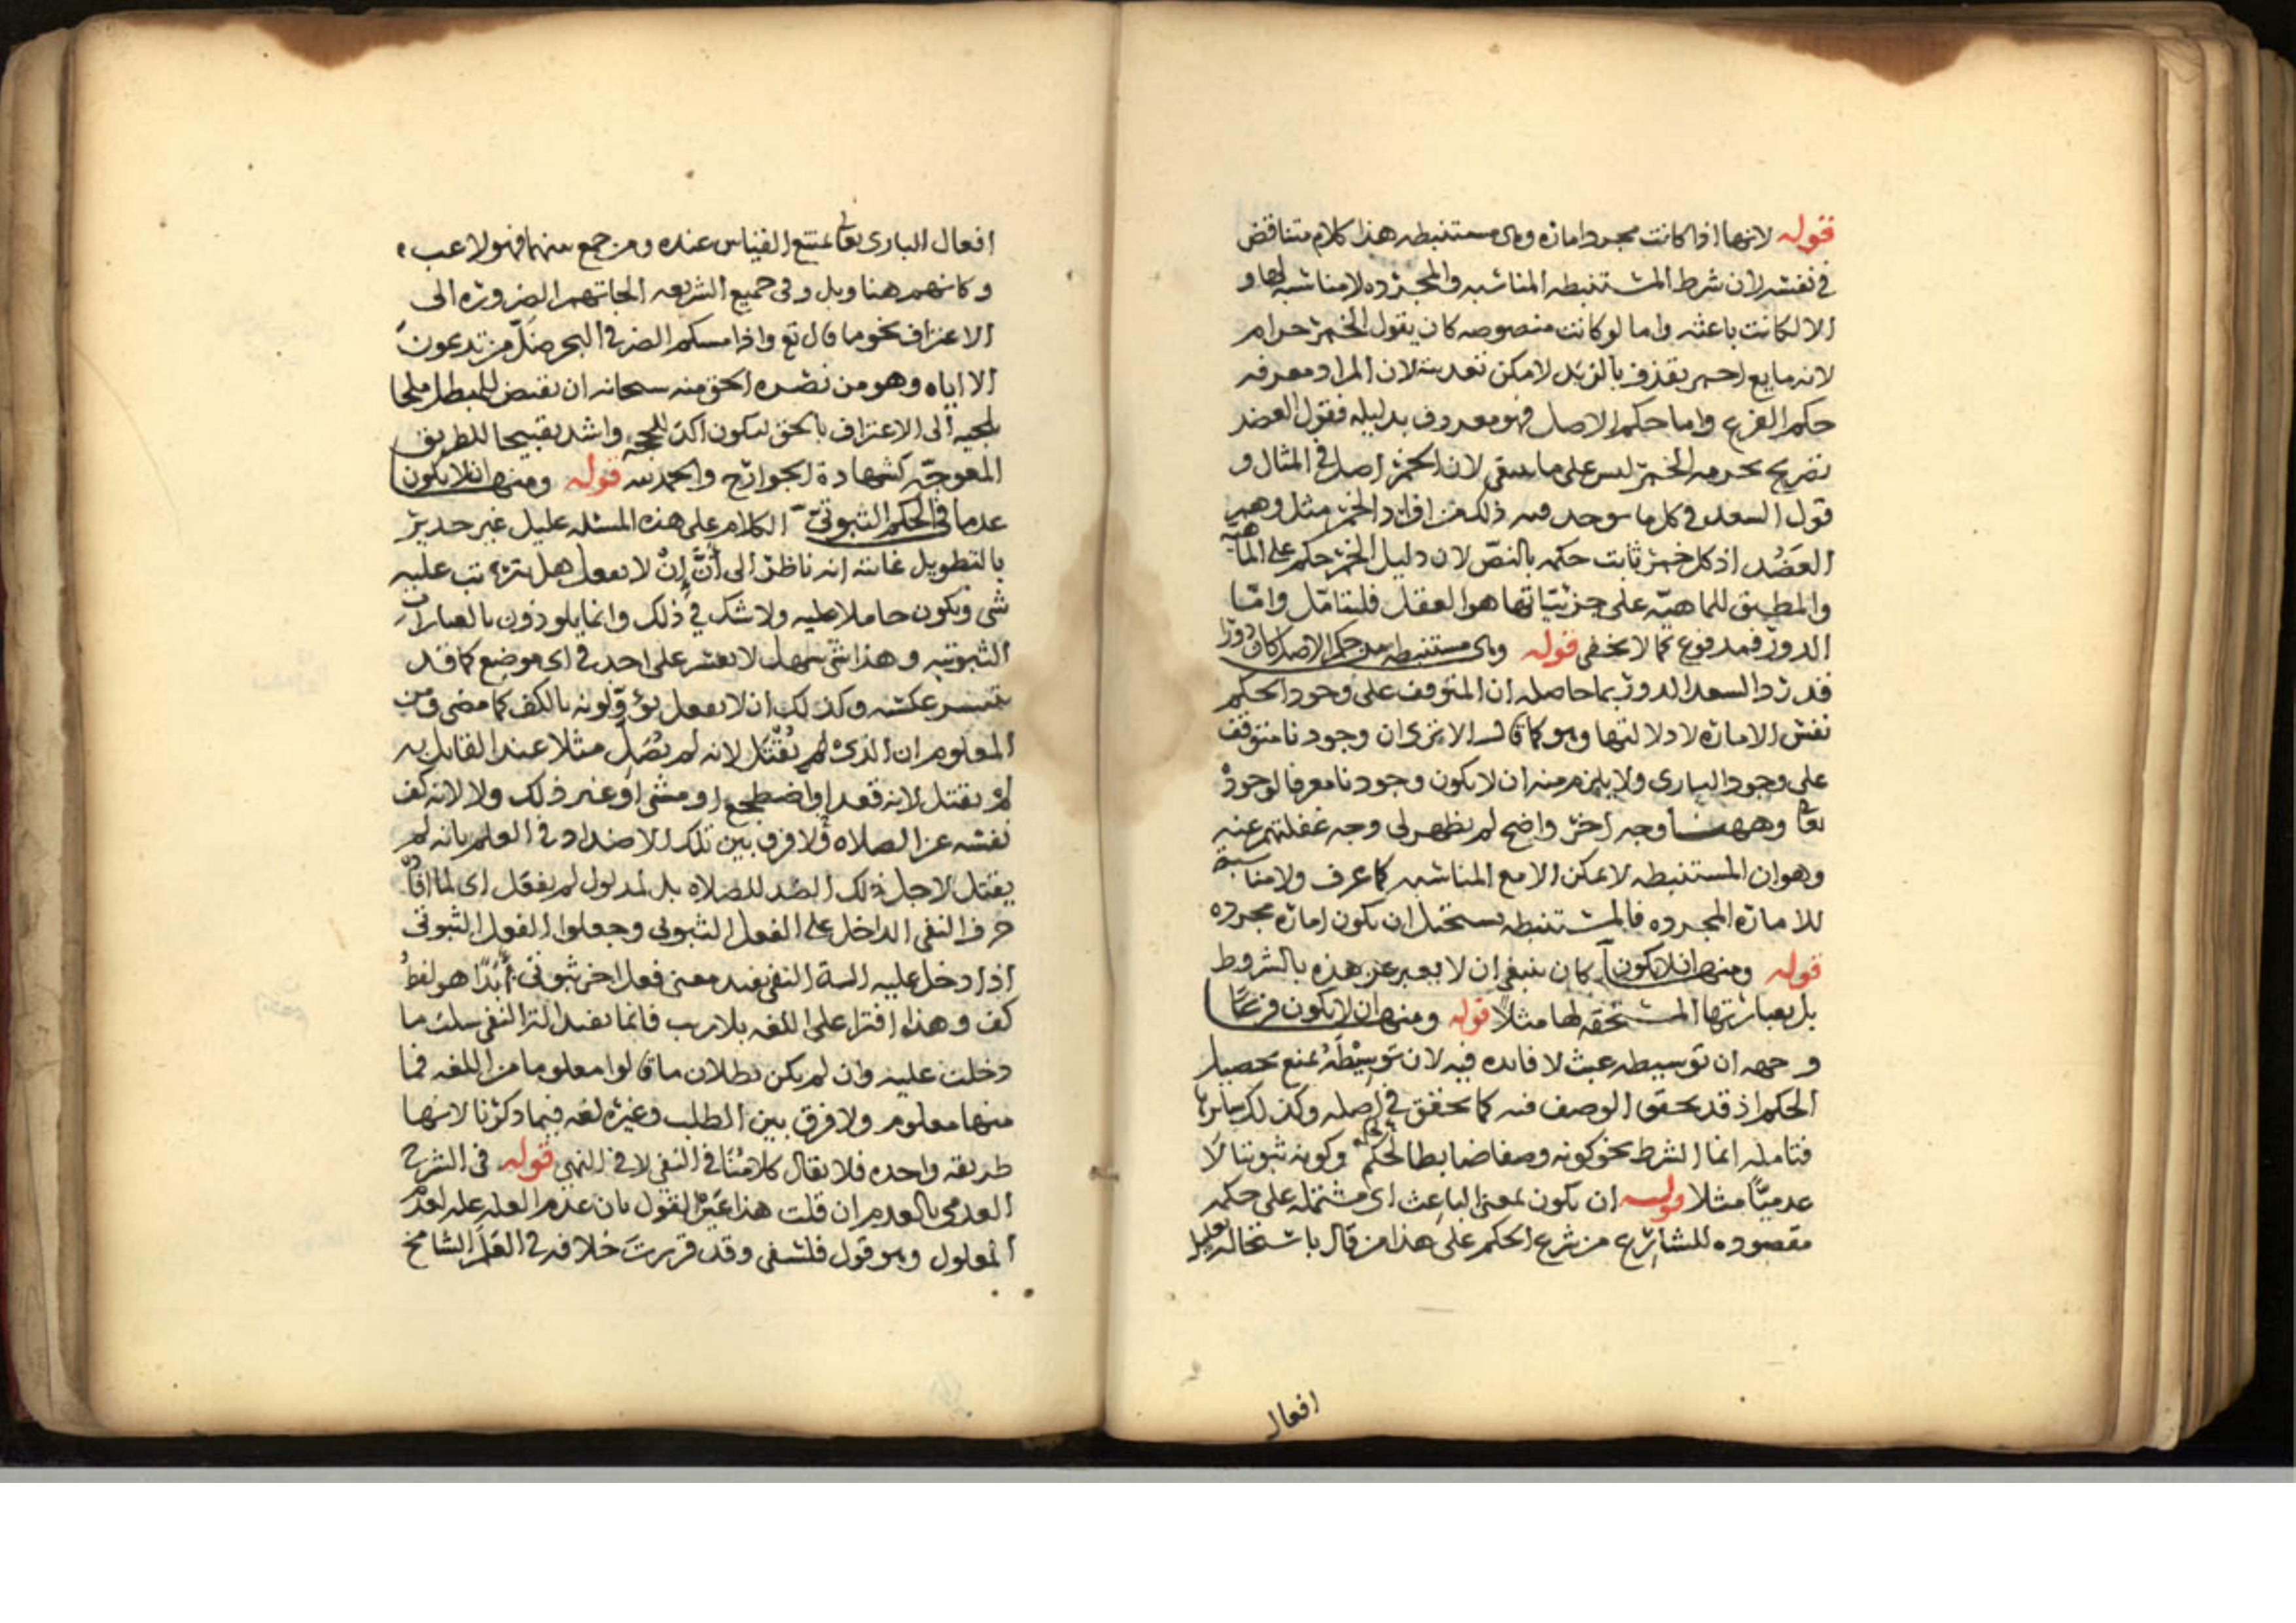 قوله لانها اذا كانت مجرد امارة وهى مستنبطه هذا كلام متناقض
فى نفسه لان شرط المستنبطه المناسبه والمجرده لا مناسبه لها و
الا لكانت باعثه واما لو كانت منصوصه كان يقول الخمر حرام
لانه مايع احمر يقذف بالزبد لامكن تعديته لان المراد معرفه
حكم الفرع واما حكم الاصل فهو معروف بدليله فقول العضد
تصريح بحرمه الخمر ليس على ما ينبغى لان الخمر اصل فى المثال و
قول السعد فى كل ما يوجد فيه ذلك من افراد الخمر مثل وهم
العضد اذ كل خمر ثابت حكمه بالنص لان دليل الخمر حكم على الماهيه
والمطبق للماهيه على جزئياتها هو العقل فليتامل واما
الدور فمدفوع بما لا يخفى قوله وهى مستنبطه من حكم الاصل كان دورا
قد رد السعد الدور بما حاصله ان المتوقف على وجود الحكم
نفس الامارة لا دلالتها وهو كما قال الا ترى ان وجودنا متوقف
على وجود البارى ولا يلزم منه ان لا يكون وجودنا معرفا لوجوده
تعالى وههنا وجه اخر واضح لم يظهر لى وجه غفلتهم عنه
وهو ان المستنبطه لا يمكن الا مع المناسبه كما عرف ولا مناسبة
للامارة المجرده فالمستنبطه يستحيل ان يكون امارة مجرده
قوله ومنها ان لا يكون كان ينبغى ان لا يعبر عن هذه بالشروط
بل بعبارتها المستحقه لها مثلا قوله ومنها ان لا يكون فرعا
وجهه ان توسيطه عبث لا فايده فيه لان توسيطه يمنع تحصيل
الحكم اذ قد تحقق الوصف فيه كما تحقق فى اصله وكذلك سايرها
فتامله انما الشرط نحو كونه وصفا ضابطا لحكمه وكونه ثبوتيا لا
عدميا مثلا قوله ان يكون بمعنى الباعث اى مشتمله على حكمه
مقصوده للشارع من شرع الحكم على هذا من قال باستحاله تعليل
افعال
افعال البارى تعالى يمتنع القياس عنده ومن جمع بينهما فهو لاعب
وكانهم هنا وبل وفى جميع الشريعه الجاتهم الضرورة الى
الاعتراف نحو ما قال تع واذا مسكم الضر فى البحر ضل من تدعون
الا اياه وهو من نصره الحق منه سبحانه ان يقيض للمبطل ملجا
يلجيه الى الاعتراف بالحق ليكون اكد للحجه واشد تقبيحا للطريق
المعوجه كشهادة الجوارح والحمد لله قوله ومنها ان لا يكون
عدما فى الحكم الثبوتى الكلام على هذه المسئله عليل غير جدير
بالتطويل غايته انه ناظر الى ان ان لا يفعل هل يترتب عليه
شى ويكون حاملا عليه ولا شك فى ذلك وانما يلوذون بالعبارات
الثبوتيه وهذا شى سهل لا يعسر على احد فى اى موضع كما قد
يتيسر عكسه وكذلك ان لا يفعل يؤولونه بالكف كما مضى ومن
المعلوم ان الذى لم يقتل لانه لم يصل مثلا عند القايل به
لم يقتل لانه قعد او اضطجع او مشى او غير ذلك ولا لانه كف
نفسه عن الصلاه ولا فرق بين تلك الاضداد فى العلم بانه لم
يقتل لاجل ذلك الضد للصلاه بل لمدلول لم يفعل اى لما افاده
حرف النفى الداخل على الفعل الثبوتى وجعلوا الفعل الثبوتى
اذا دخل عليه الة النفى يفيد معنى فعل اخر ثبوتى ابدا هو لفظ
كف وهذا افترا على اللغه بلا ريب فانما تفيد الة النفى سلب ما
دخلت عليه وان لم يكن بطلان ما قالوا معلوما من اللغه فما
منها معلوم ولا فرق بين الطلب وغيره لغه فيما ذكرنا لانها
طريقه واحده فلا يقال كلامنا فى النفى لا فى النهى قوله فى الشرح
العدمى بالعدم ان قلت هذا عين القول بان عدم العله عله لعدم
المعلول وهو قول فلسفى وقد قررت خلافه فى العلم الشامخ